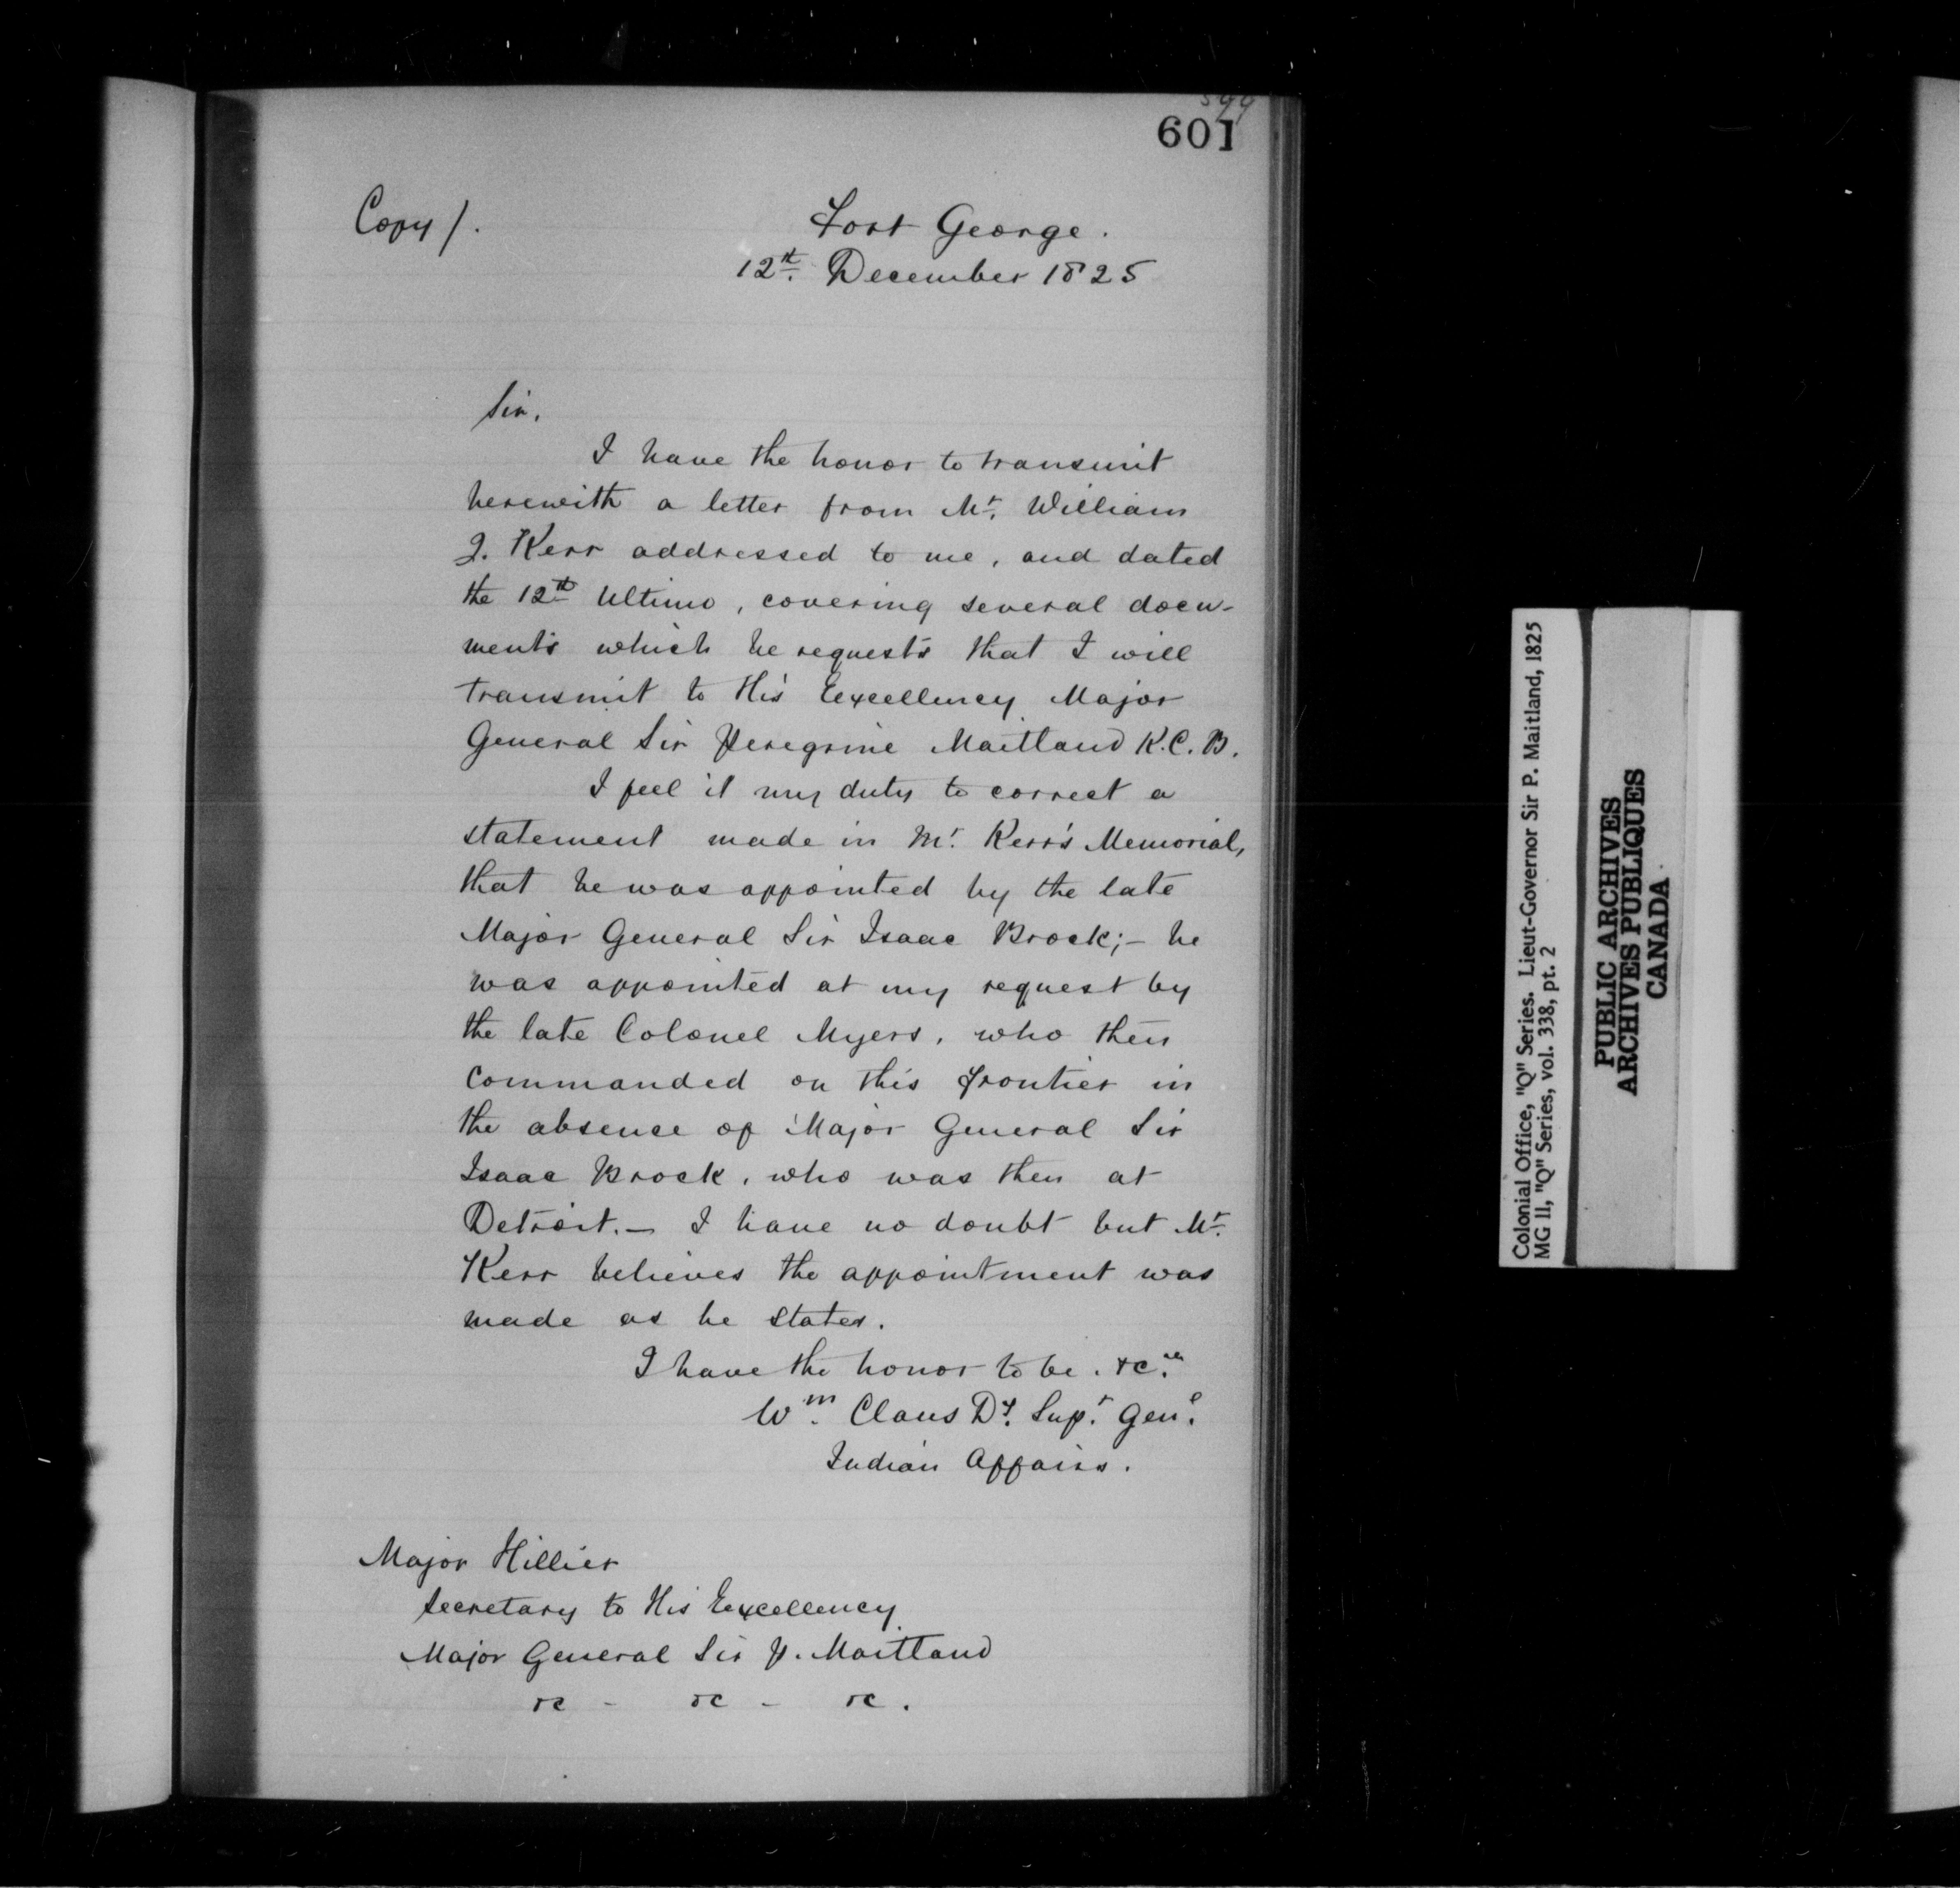 599
601
Copy/.
Fort George.
12th. December 1825
Sir,
I have the honor to transmit
herewith a letter from Mr. William
J. Kerr addressed to me, and dated
the 12th Ultimo, covering several docu-
ments which he requests that I will
transmit to His Excellency Major
General Sir Peregrine Maitland K.C.B.
I feel it my duty to correct a
statement made in Mr. Kerr's Memorial,
that he was appointed by the late
Major General Sir Isaac Brock;- he
was appointed at my request by
the late Colonel Myers, who then
commanded on this frontier in
the absence of Major General Sir
Isaac Brock, who was then at
Detroit.- I have no doubt but Mr.
Kerr believes the appointment was
made as he states.
I have the honor to be. &c.
Wm. Claus Dy. Supt. Genl.
Indian Affairs.
Major Hillier
Secretary to His Excellency
Major General Sir P. Maitland
&c - &c - &c.
Colonial Office, "Q" Series. Lieut-Governor Sir P. Maitland, 1825
MG 11, "Q" Series, vol. 338, pt. 2
PUBLIC ARCHIVES
ARCHIVES PUBLIQUES
CANADA